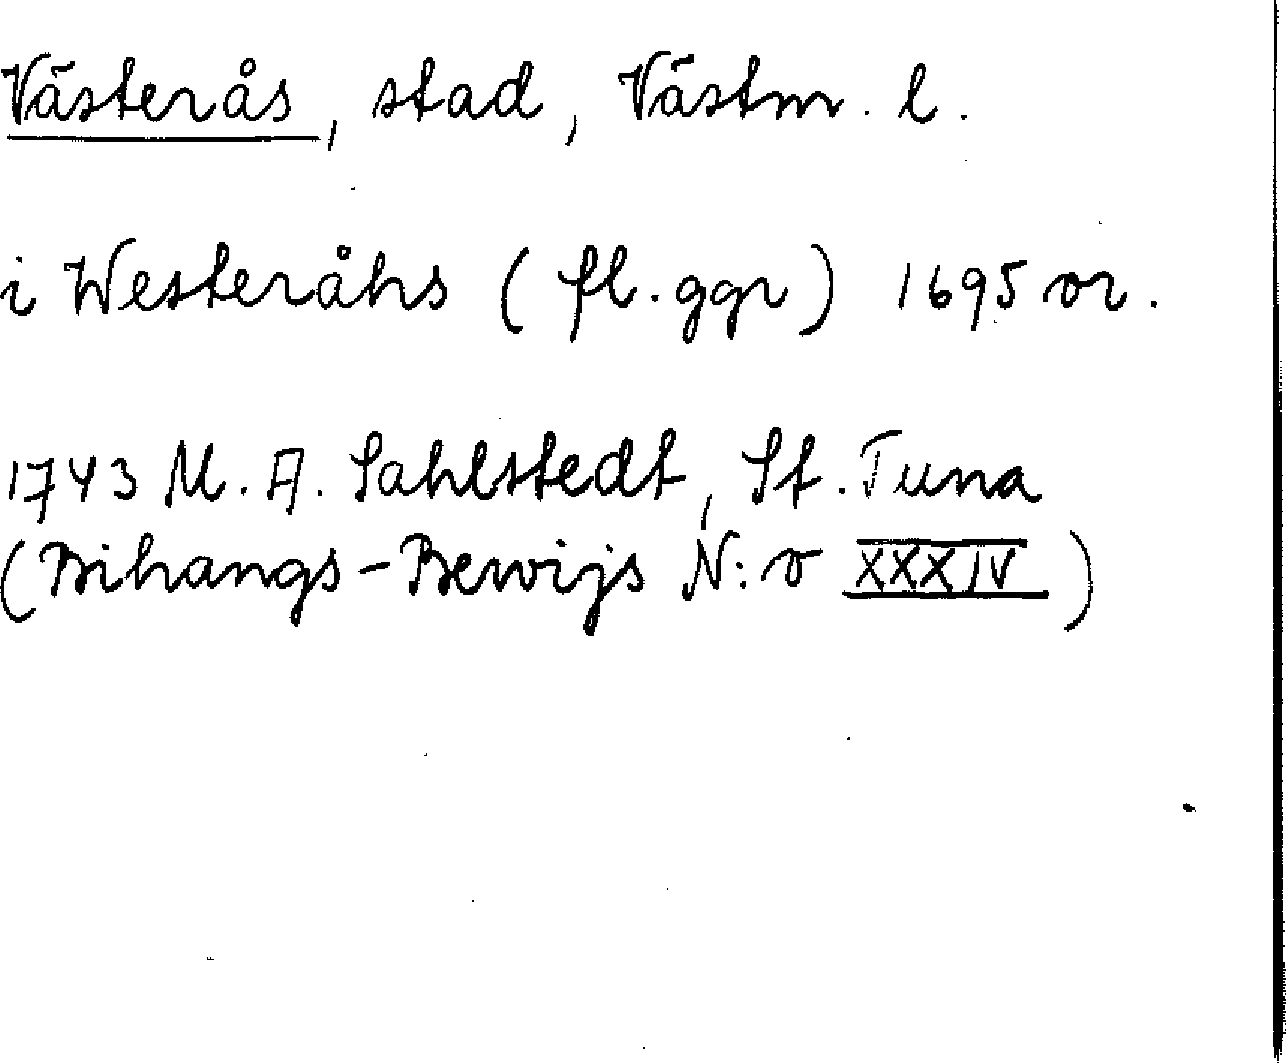 Västerås, stad, Västm. l.
i Westeråhs (fl. ggr) 1695 or.
1743 M. A. Sahlstedt, St. Tuna
(Bihangs-Bewijs N:o XXXIV)